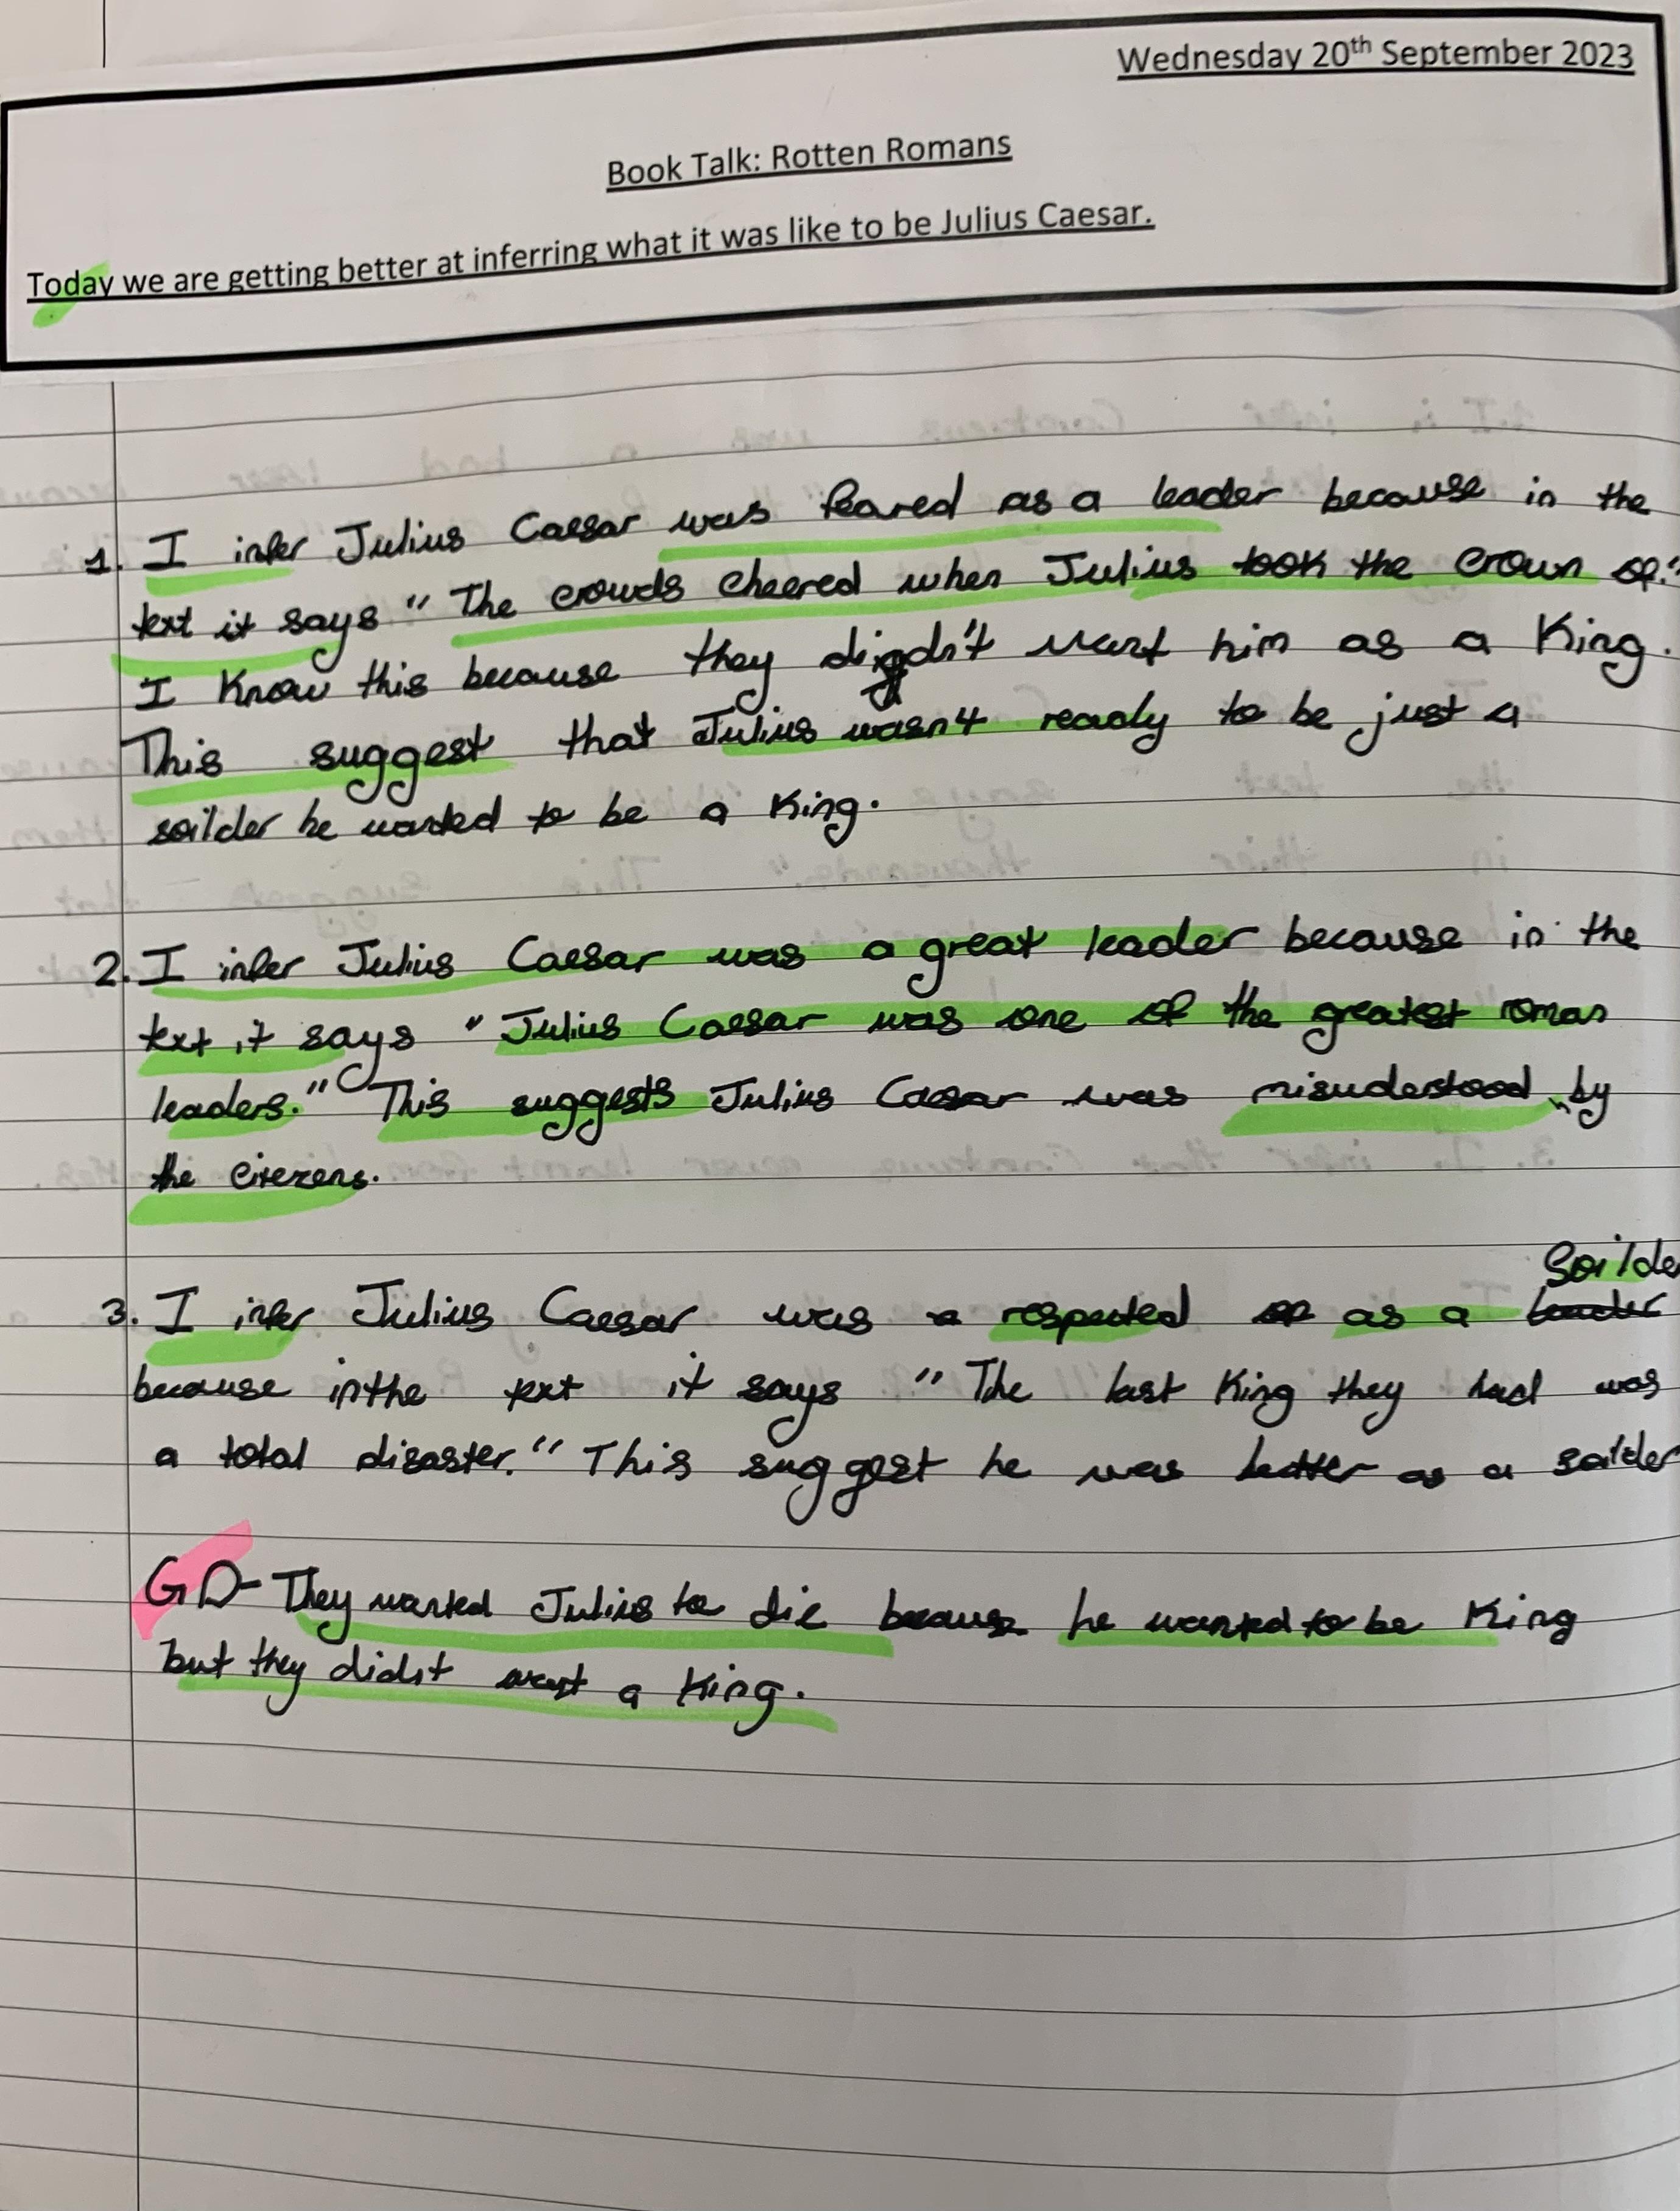 Wednesday 20th September 2023
Book Talk: Rotten Romans
Today we are getting better at inferring what it was like to be Julius Caesar.
1. I infer Julius Caesar was feared as a leader because in the
text it says "The crowds cheered when Julius took the crown of."
I know this because they didn't want him as a King.
This suggest that Julius wasn't ready to be just a
soilder he wanted to be a King.
2. I infer Julius Caesar was a great leader because in the
text it says "Julius Caesar was one of the greatest roman
leaders." This suggests Julius Caesar was misuderstood by
the citezens.
Soilder
3. I infer Julius Caesar was a respected as a leader
because in the text it says "The last King they had was
a total disaster." This suggest he was better as a soilder
GD- They wanted Julius to die because he wanted to be King
but they didnt want a King.